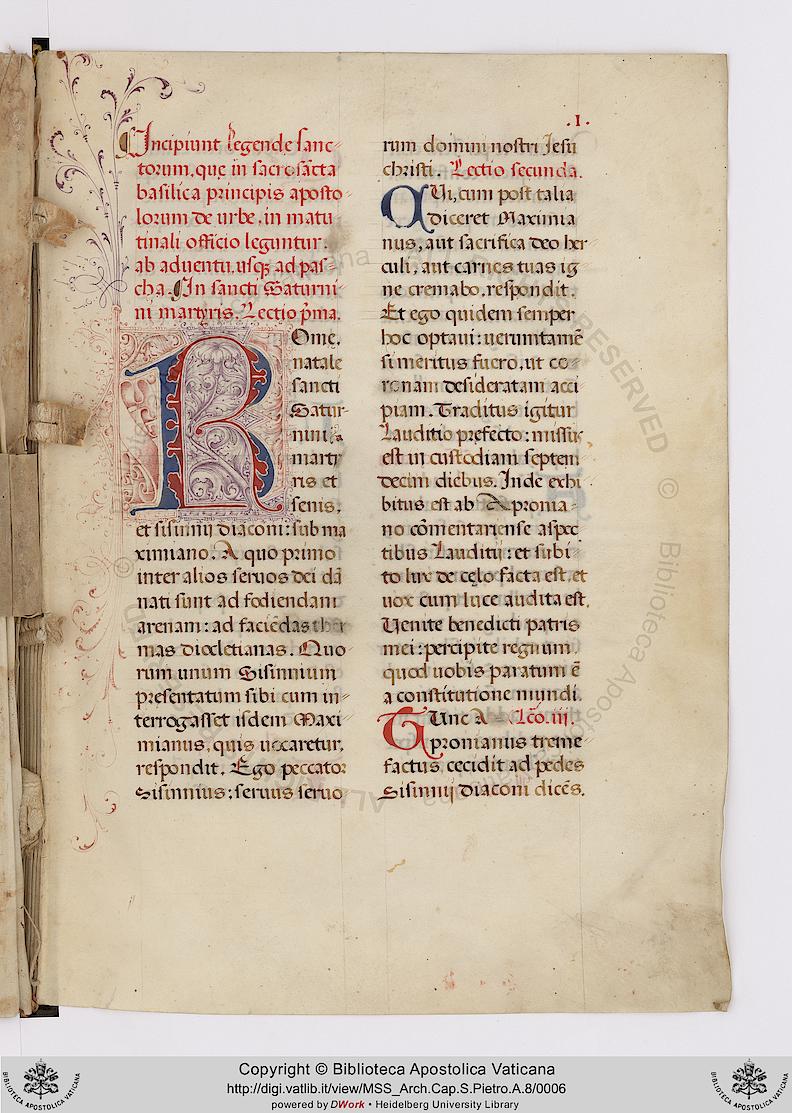 .I.
Incipiunt legende sanc-
torum, quę in sacrosācta
basilica principis aposto
lorum de urbe, in matu
tinali officio leguntur.
ab aduentu, usq; ad pas-
cha. In sancti Saturni-
ni martyris. Lectio p̄ma.
Rome,
natale
sancti
Satur-
nini
marty
ris et
senis,
et sisinnij diaconi: sub ma
ximiano. A quo primo
inter alios seruos dei dā
nati sunt ad fodiendam
arenam: ad faciēdas ther
mas diocletianas. Quo
rum unum Sisinnium
presentatum sibi cum in-
terrogasset isdem Maxi
mianus, quis uocaretur,
respondit. Ego peccator
Sisinnius: seruus seruo
rum domini nostri Iesu
christi. Lectio secunda.
Qui, cum post talia
diceret Maximia
nus, aut sacrifica deo her
culi, aut carnes tuas ig
ne cremabo, respondit.
Et ego quidem semper
hoc optaui: uerumtamē
si meritus fuero, ut co-
ronam desideratam acci
piam. Traditus igitur
Lauditio prefecto: missus
est in custodiam septem
decim diebus. Inde exhi
bitus est ab Apronia-
no cōmentariense aspec
tibus Lauditii: et subi
to lux de cęlo facta est, et
uox cum luce audita est,
Uenite benedicti patris
mei: percipite regnum
quod uobis paratum ē
a constitutione mundi.
Tunc A Lc̄o. iii.
pronianus treme
factus, cecidit ad pedes
Sisinnij diaconi dicēs.
© Biblioteca Apostolica Vaticana
ALL RIGHTS RESERVED
Copyright © Biblioteca Apostolica Vaticana
http://digi.vatlib.it/view/MSS_Arch.Cap.S.Pietro.A.8/0006
powered by DWork • Heidelberg University Library
BIBLIOTECA APOSTOLICA VATICANA
BIBLIOTECA APOSTOLICA VATICANA